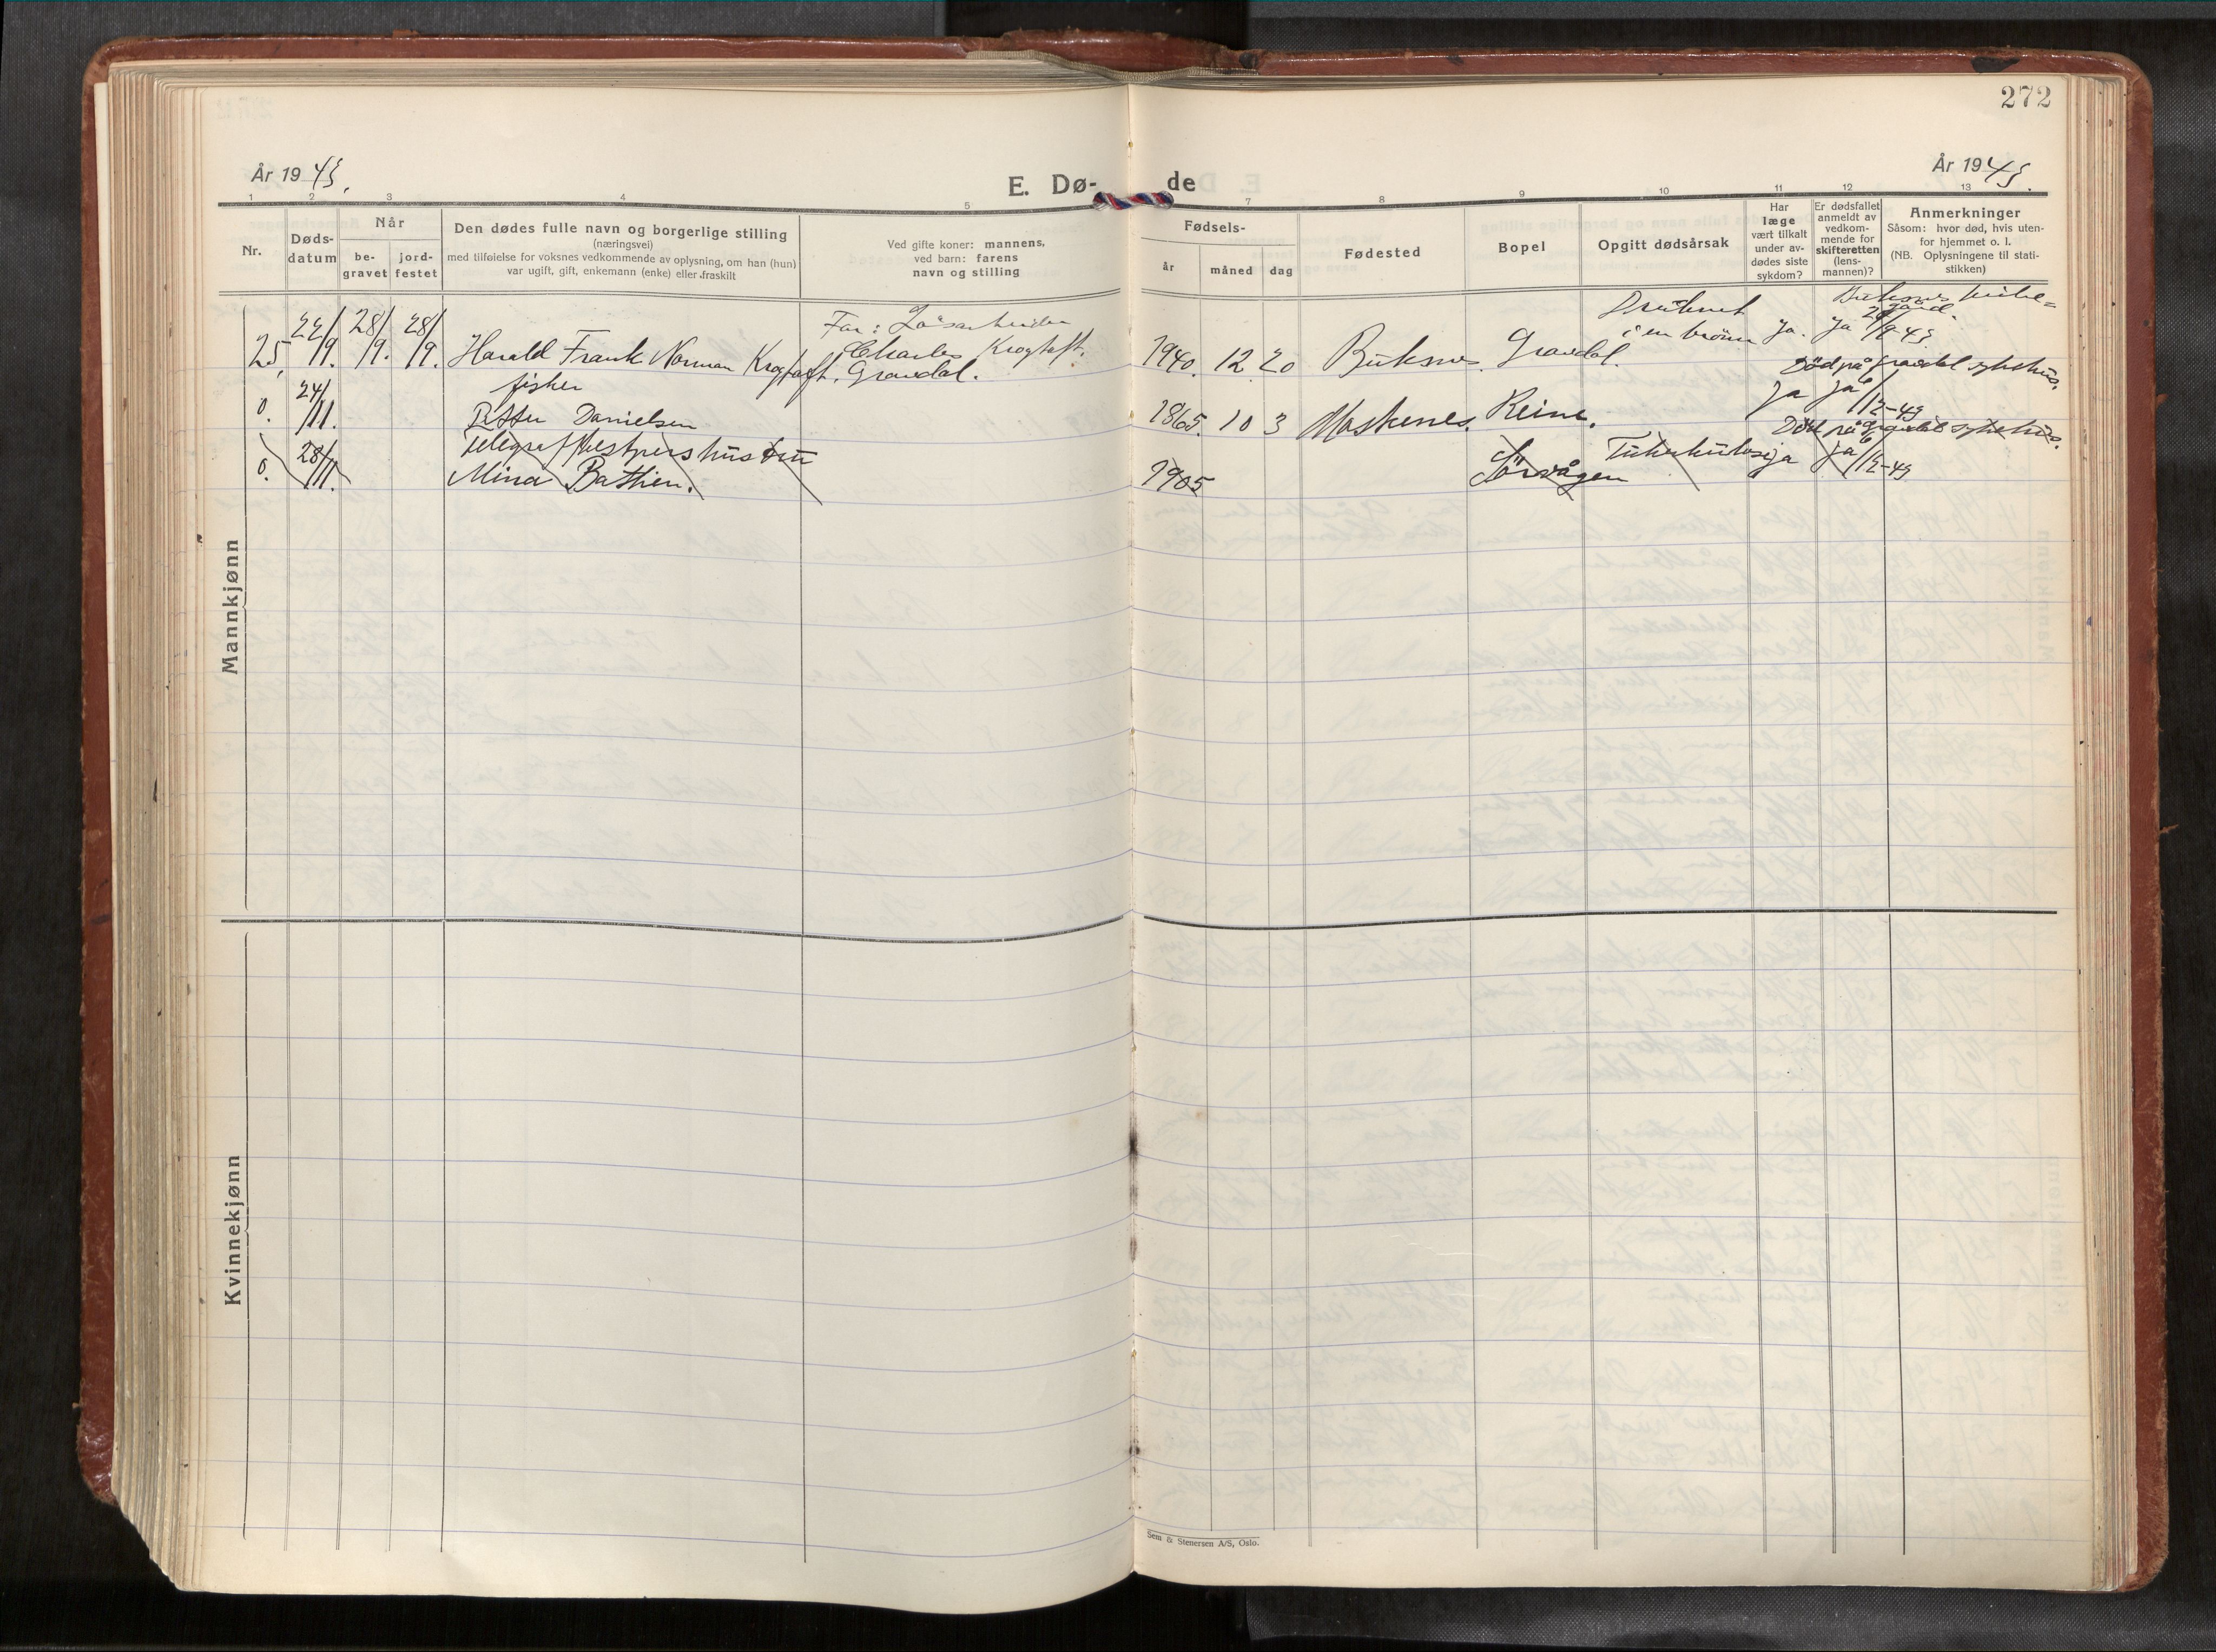 272
År 1943.
E. Dø-
de
År 1943.
1 2 3 4 5 7 8 9 10 11 12 13
Nr.
Døds-
datum
Når
be-
gravet
jord-
festet
Den dødes fulle navn og borgerlige stilling
(næringsvei)
med tilføielse for voksnes vedkommende av oplysning, om han (hun)
var ugift, gift, enkemann (enke) eller fraskilt
Ved gifte koner: mannens,
ved barn: farens
navn og stilling
Fødsels-
år
måned
dag
Fødested
Bopel
Opgitt dødsårsak
Har
læge
vært tilkalt
under av-
dødes siste
sykdom?
Er dødsfallet
anmeldt av
vedkom-
mende for
skifteretten
(lens-
mannen)?
Anmerkninger
Såsom: hvor død, hvis uten-
for hjemmet o. l.
(NB. Oplysningene til stati-
stikken)
Mannkjønn
25. 22/9. 28/9. 28/9. Harald Frank Norman Krogtoft.
Far: Løsarbeider
Charles Krogtoft.
Gravdal.
1940. 12. 20 Buksnes. Gravdal.
Druknet
i en brønn
Ja. Ja 29/9-43.
Buksnes kirke=
gård.
fisker
0. 24/11. Petter Danielsen
1865. 10 3 Moskenes. Reine.
Ja Ja 6/12-43
Död på Gravdal sykehus.
Telegrafbestyrers hustru
0. 28/11. Mina Bathien.
1905 Sörvågen Tuberkulose ja ja 6/12-43
Död på Gravdal sykehus.
Kvinnekjønn
Sem & Stenersen A/S, Oslo.